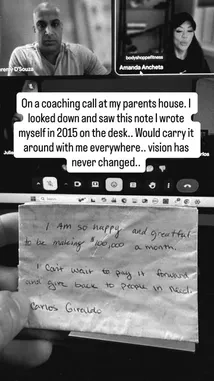 bodyshoppefitness
Amanda Ancheta
On a coaching call at my parents house. I
looked down and saw this note I wrote
myself in 2015 on the desk.. Would carry it
around with me everywhere.. vision has
never changed..
I Am so happy and greatful
to be making $100,000 a month.
I Can't wait to pay it forward
and give back to people in need.
Carlos Giraldo